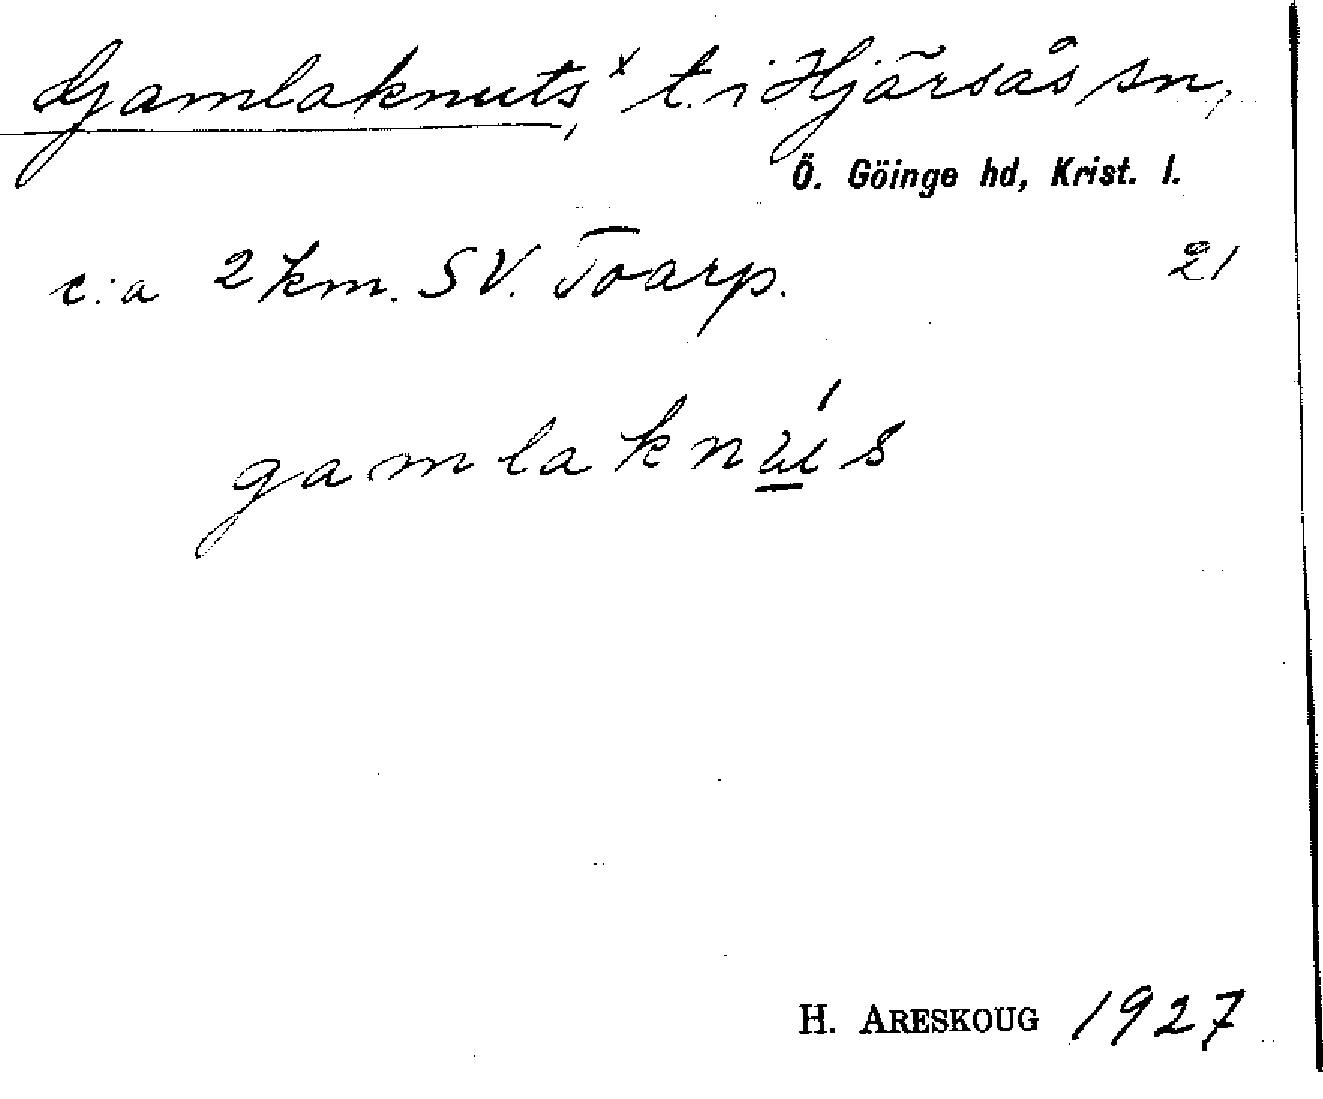 Gamlaknuts,ˣ t. i Hjärsås sn,
Ö. Göinge hd, Krist. l.
c:a 2 km. SV. Toarp. 21
gamlaknu̲ís
H. ARESKOUG 1927